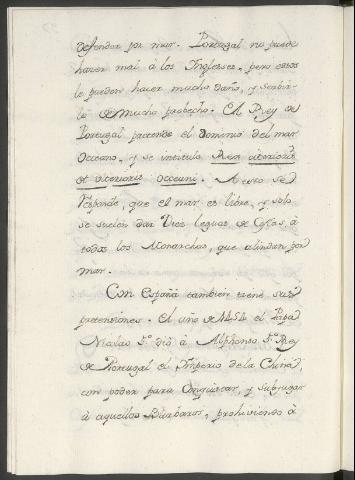 defender por mar. Portugal no puede
hazer mal á los Ingleses, pero estos
le pueden hacer mucho daño, y servir-
le de mucho probecho. El Rey de
Portugal pretende el Dominio del mar
Occeano, y se intitula Rex citerioris
et ulterioris Occeani. A esto se
responde, que el mar es libre, y solo
se suelen dar Diez leguas de Costas á
todos los Monarchas, que alindan por
mar.
Con España tambien tiene sus
pretensiones. El año de 1454 el Papa
Nicolao 5.º dió à Alphonso 5.º Rey
de Portugal el Imperio de la China,
con poder para Conquistar, y subyugar
à aquellos Barbaros, prohiviendo à